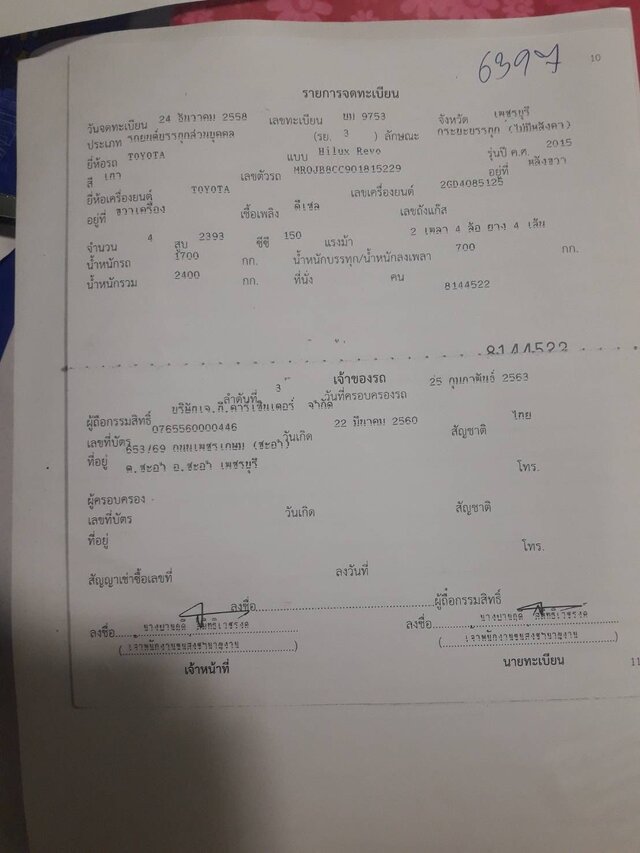 6397
10
รายการจดทะเบียน
วันจดทะเบียน 24 ธันวาคม 2558 เลขทะเบียน 9753 จังหวัด เพชรบุรี
ประเภท รถยนต์บรรทุกส่วนบุคคล (รย. 3 ) ลักษณะ กระบะบรรทุก (ไม่มีหลังคา)
ยี่ห้อรถ TOYOTA แบบ Hilux Revo รุ่นปี ค.ศ. 2015
สี เทา เลขตัวรถ MR0JB8CC901815229 อยู่ที่
ยี่ห้อเครื่องยนต์ TOYOTA เลขเครื่องยนต์ 2GD4085125
อยู่ที่ ขวาเครื่อง เชื้อเพลิง ดีเซล เลขถังแก๊ส
จำนวน 4 สูบ 2393 ซีซี 150 แรงม้า 2 เพลา 4 ล้อ ยาง 4 เส้น
น้ำหนักรถ 1700 กก. น้ำหนักบรรทุก/น้ำหนักลงเพลา 700 กก.
น้ำหนักรวม 2400 กก. ที่นั่ง คน
8144522
8144522
เจ้าของรถ
ลำดับที่ 3 วันที่ครอบครองรถ 25 กุมภาพันธ์ 2563
ผู้ถือกรรมสิทธิ์ บริษัทเจ.ที.คาร์เซ็นเตอร์ จำกัด
เลขที่บัตร 0765560000446 วันเกิด 22 มีนาคม 2560 สัญชาติ ไทย
ที่อยู่ 653/69 ถนนเพชรเกษม (ชะอำ)
ต.ชะอำ อ.ชะอำ เพชรบุรี โทร.
ผู้ครอบครอง
เลขที่บัตร วันเกิด สัญชาติ
ที่อยู่ โทร.
สัญญาเช่าซื้อเลขที่ ลงวันที่
ลงชื่อ ผู้ถือกรรมสิทธิ์
ลงชื่อ ลงชื่อ
(เจ้าพนักงานขนส่งชำนาญงาน) (เจ้าพนักงานขนส่งชำนาญงาน)
เจ้าหน้าที่ นายทะเบียน
11